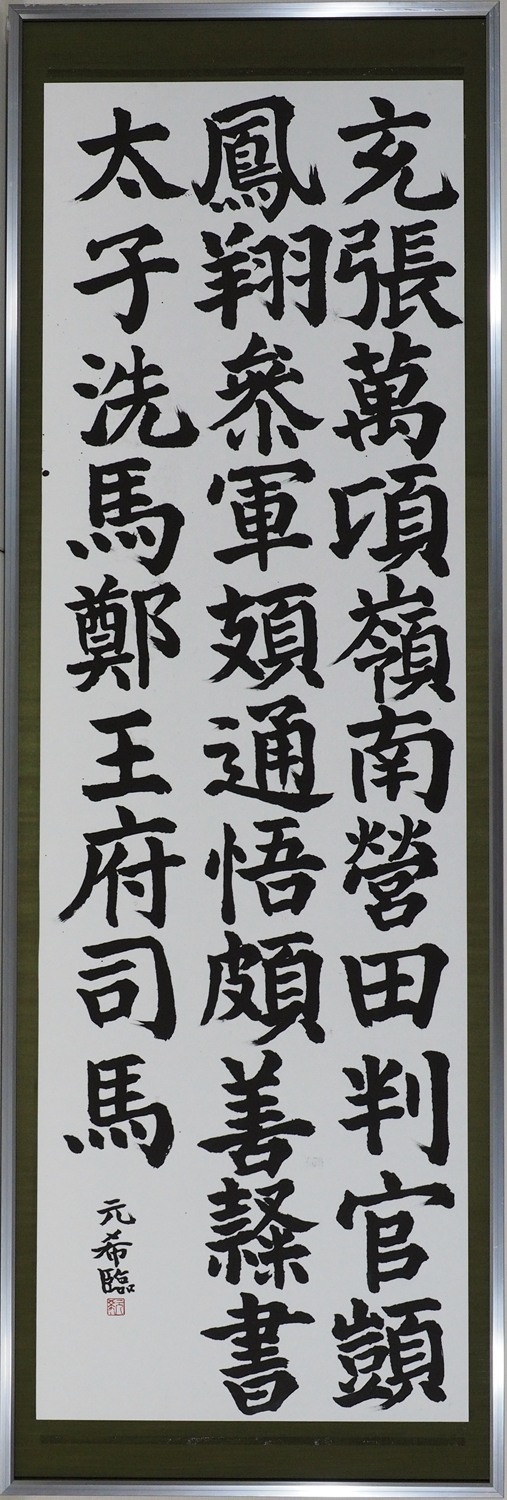 充張萬頃嶺南營田判官顗
鳳翔參軍頍通悟頗善隸書
太子洗馬鄭王府司馬
元希臨